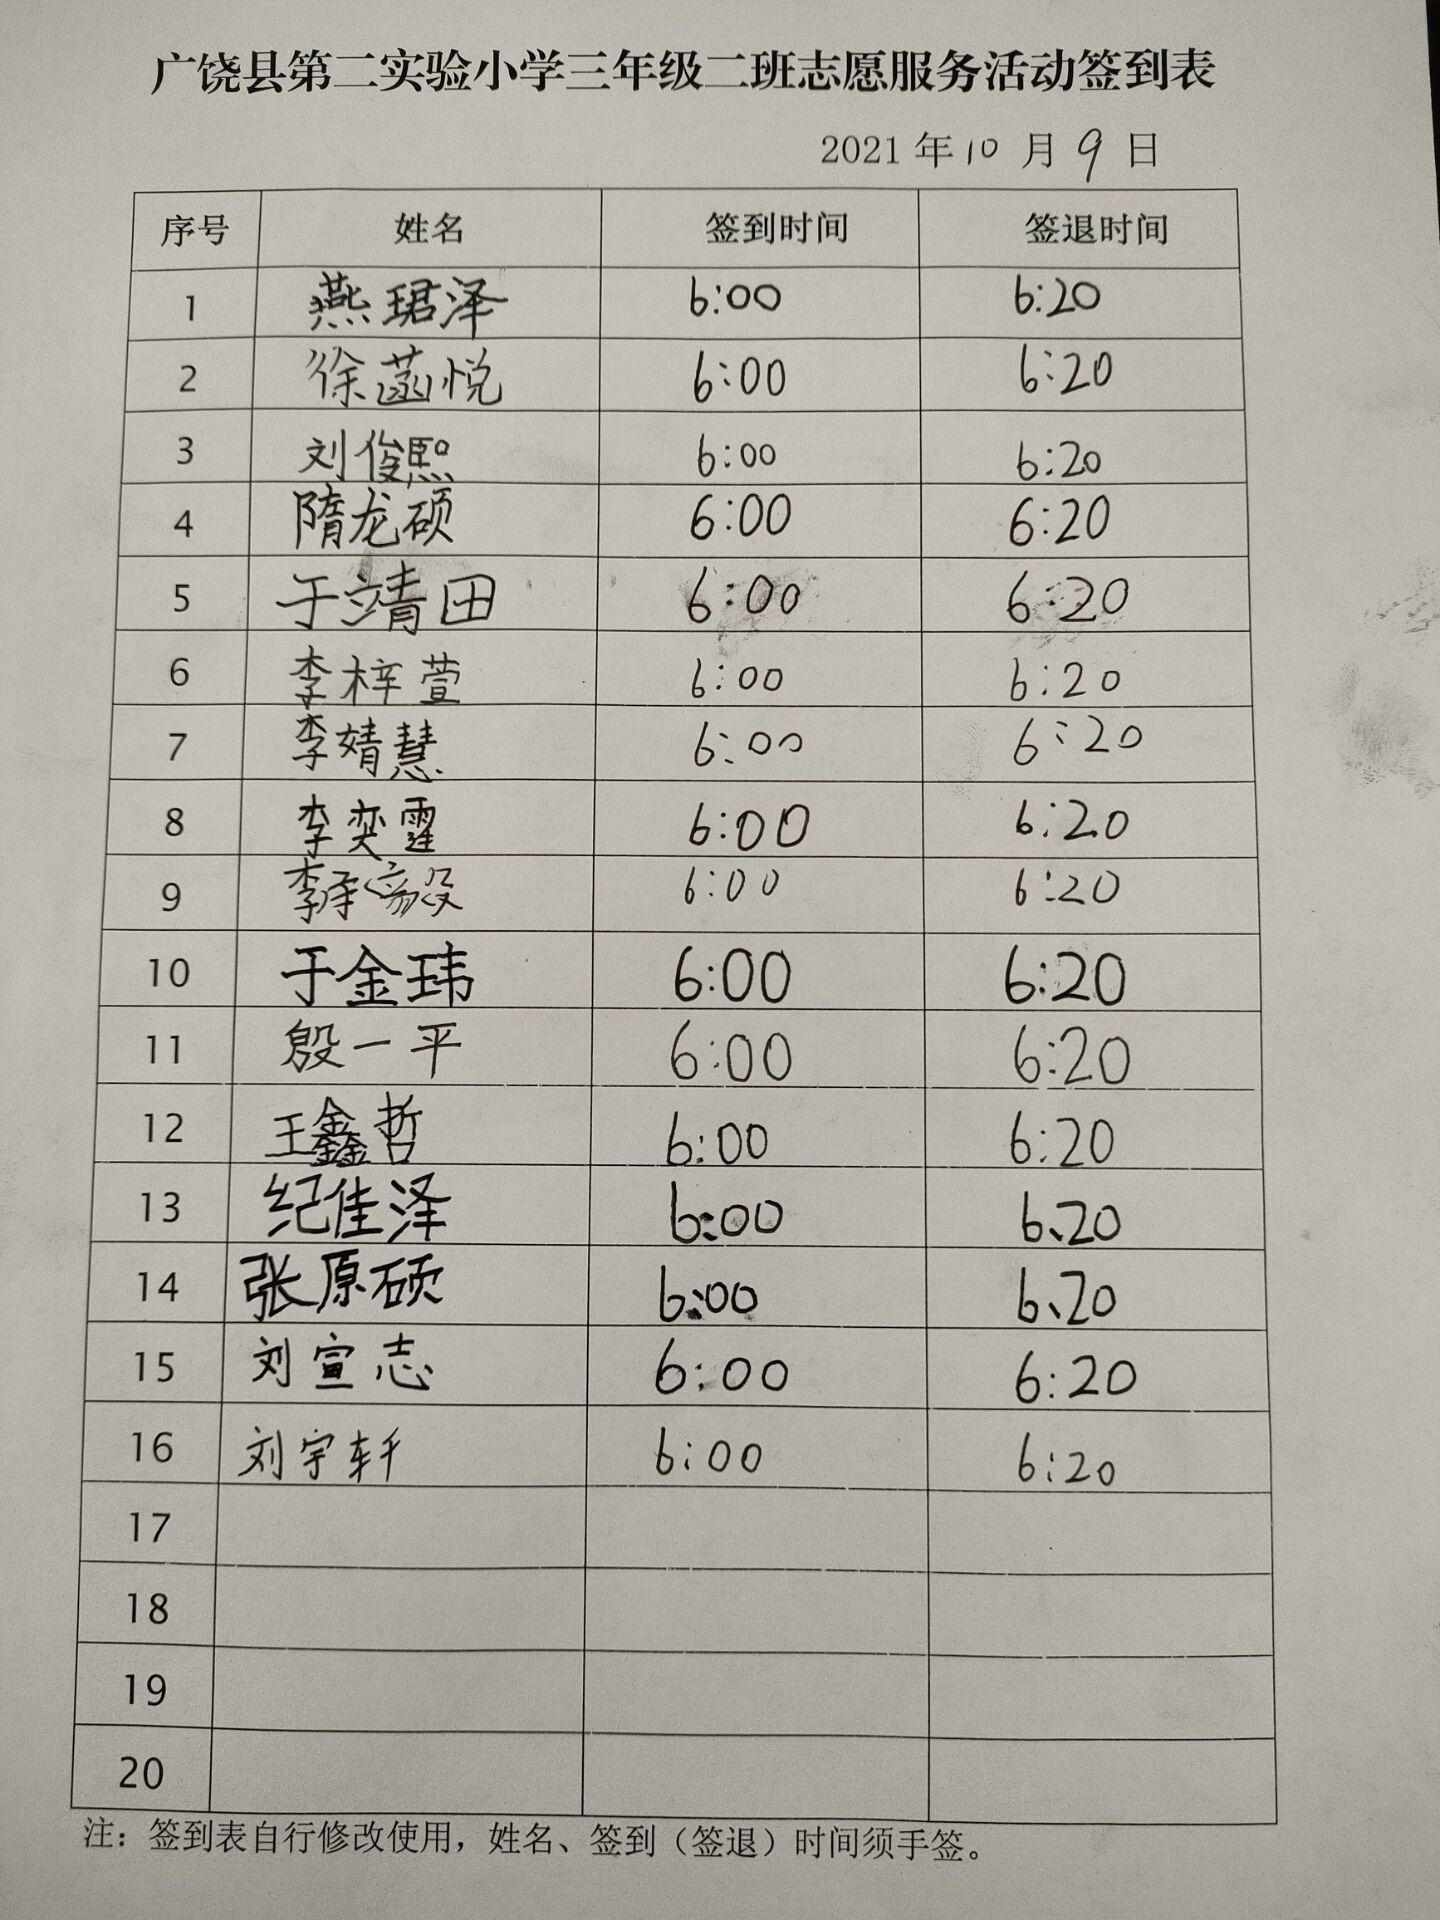 广饶县第二实验小学三年级二班志愿服务活动签到表
2021年10月9日
序号 姓名 签到时间 签退时间
1 燕珺泽 6:00 6:20
2 徐菡悦 6:00 6:20
3 刘俊熙 6:00 6:20
4 隋龙硕 6:00 6:20
5 于靖田 6:00 6:20
6 李梓萱 6:00 6:20
7 李婧慧 6:00 6:20
8 李奕霆 6:00 6:20
9 李 6:00 6:20
10 于金玮 6:00 6:20
11 殷一平 6:00 6:20
12 王鑫哲 6:00 6:20
13 纪佳泽 6:00 6、20
14 张原硕 6:00 6、20
15 刘宣志 6:00 6:20
16 刘宇轩 6:00 6:20
17
18
19
20
注：签到表自行修改使用，姓名、签到（签退）时间须手签。